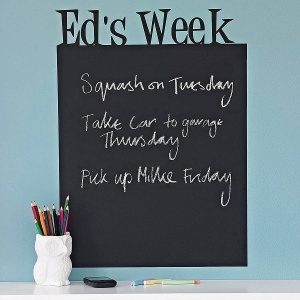 Ed's Week
Squash on Tuesday
Take Car to garage
Thursday
Pick up Millie Friday